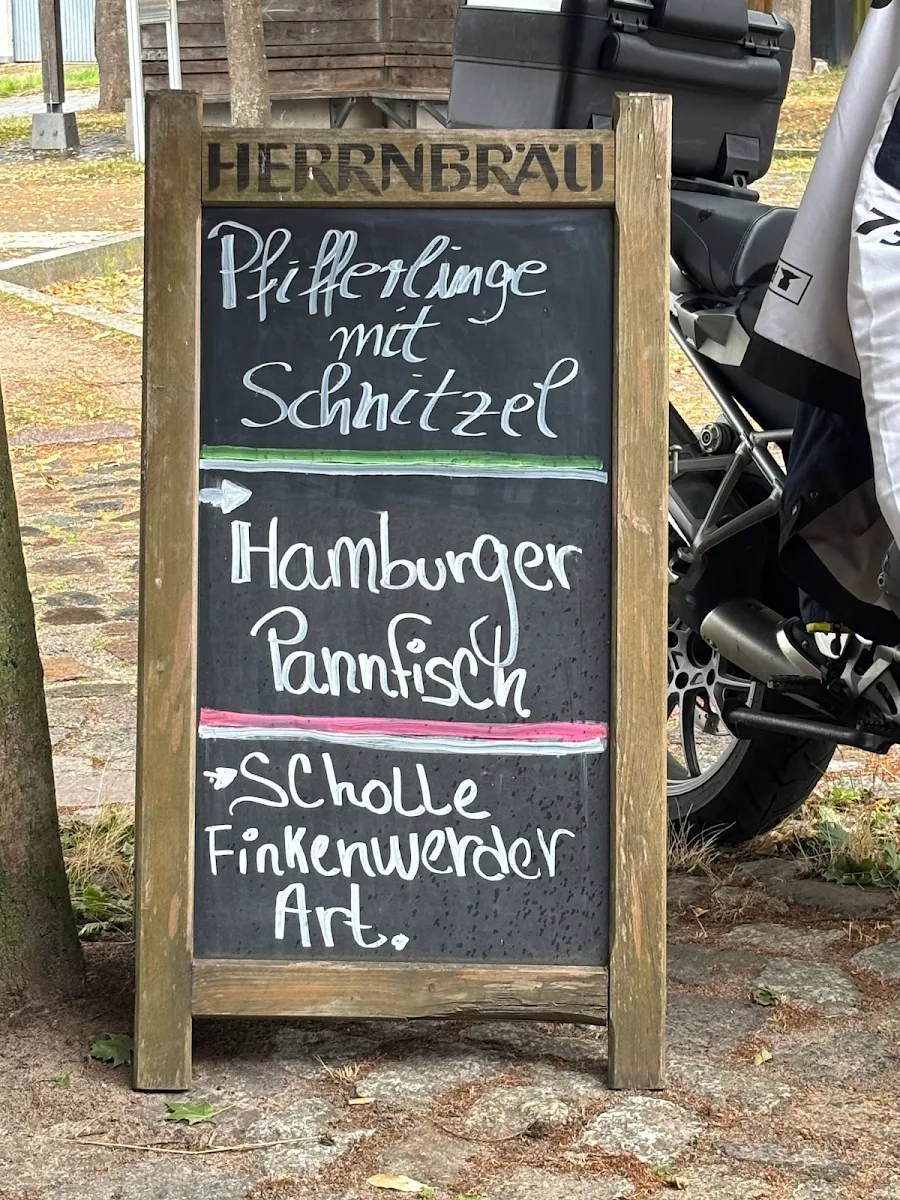 HERRNBRÄU
Pfifferlinge
mit
Schnitzel
Hamburger
Pannfisch
Scholle
Finkenwerder
Art.